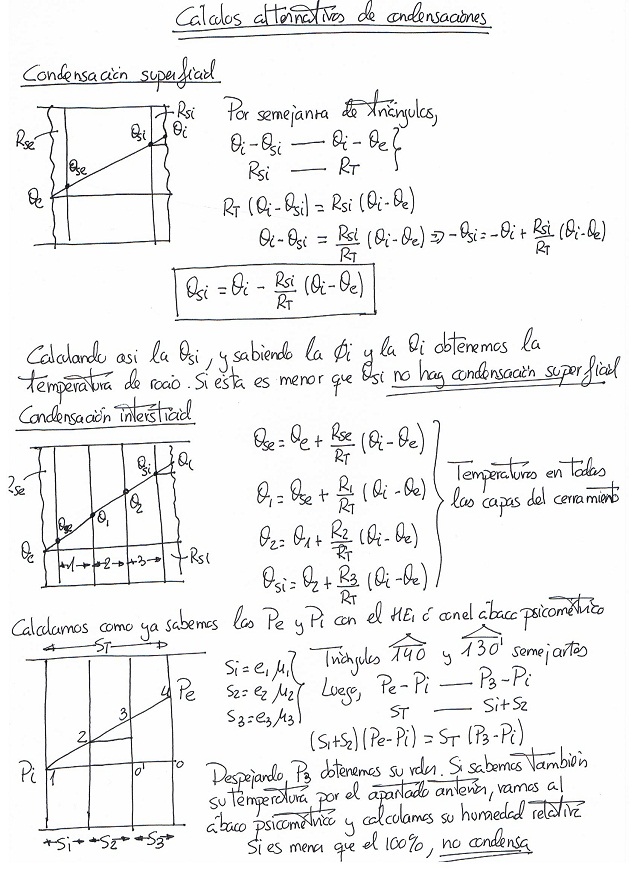 Cálculos alternativos de condensaciones
Condensación superficial
Rse
θse
θe
θsi
Rsi
θi
Por semejanza de triángulos,
θi-θsi — θi-θe
Rsi — RT
RT (θi-θsi) = Rsi (θi-θe)
θi-θsi = Rsi/RT (θi-θe) ⇒ -θsi = -θi + Rsi/RT (θi-θe)
θsi = θi - Rsi/RT (θi-θe)
Calculando asi la θsi, y sabiendo la φi y la θi obtenemos la
temperatura de rocio. Si esta es menor que θsi no hay condensación superficial
Condensación intersticial
Rse
θse
θe
θ1
θ2
θsi
θi
1
2
3
Rsi
θse = θe + Rse/RT (θi-θe)
θ1 = θse + R1/RT (θi-θe)
θ2 = θ1 + R2/RT (θi-θe)
θsi = θ2 + R3/RT (θi-θe)
Temperaturas en todas
las capas del cerramiento
Calculamos como ya sabemos las Pe y Pi con el HE1 ó con el ábaco psicométrico
ST
Pi
1
2
3
4
Pe
0'
0
S1
S2
S3
S1 = e1 μ1
S2 = e2 μ2
S3 = e3 μ3
Triángulos 140 y 130' semejantes
Luego, Pe-Pi — P3-Pi
ST — S1+S2
(S1+S2)(Pe-Pi) = ST (P3-Pi)
Despejando P3 obtenemos su valor. Si sabemos también
su temperatura por el apartado anterior, vamos al
ábaco psicométrico y calculamos su humedad relativa
Si es menor que el 100%, no condensa